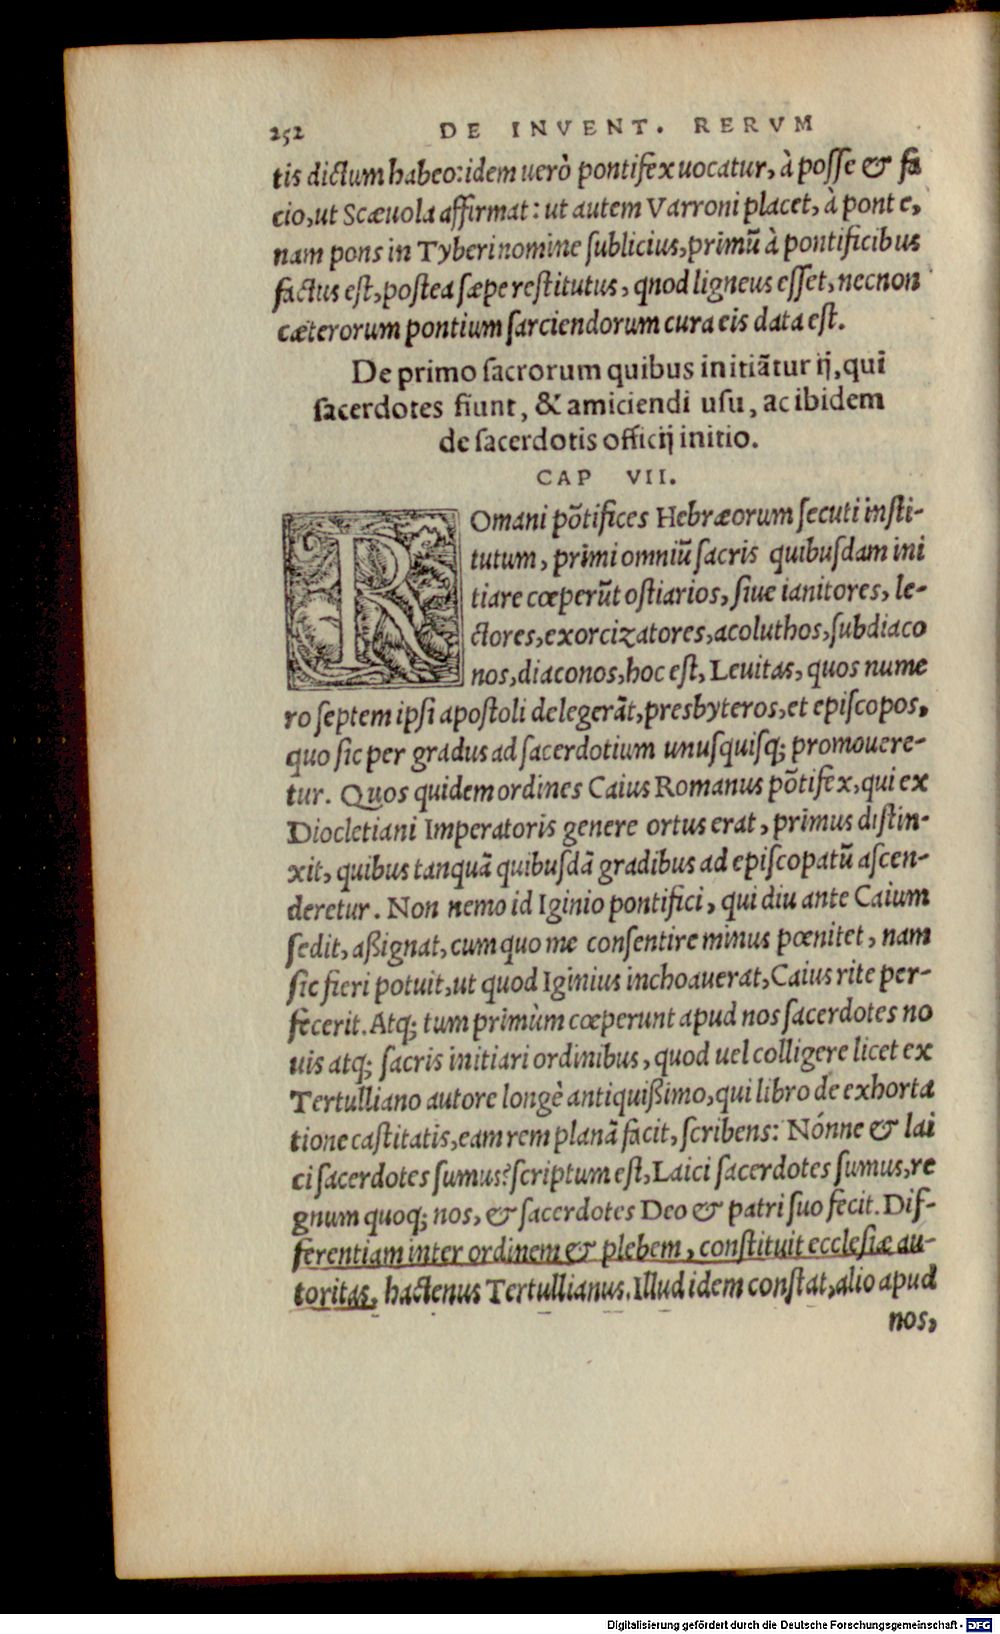 252 DE INVENT. RERVM
tis dictum habeo: idem uerò pontifex uocatur, à posse & fa
cio, ut Scæuola affirmat: ut autem Varroni placet, à ponte,
nam pons in Tyberi nomine sublicius, primũ à pontificibus
factus est, postea sæpe restitutus, qnod ligneus esset, necnon
cæterorum pontium sarciendorum cura eis data est.
De primo sacrorum quibus initiãtur ij, qui
sacerdotes fiunt, & amiciendi usu, ac ibidem
de sacerdotis officij initio.
CAP VII.
ROmani põtifices Hebræorum secuti insti-
tutum, primi omniũ sacris quibusdam ini
tiare cœperũt ostiarios, siue ianitores, le-
ctores, exorcizatores, acoluthos, subdiaco
nos, diaconos, hoc est, Leuitas, quos nume
ro septem ipsi apostoli delegerãt, presbyteros, et episcopos,
quo sic per gradus ad sacerdotium unusquisq; promouere-
tur. Quos quidem ordines Caius Romanus põtifex, qui ex
Diocletiani Imperatoris genere ortus erat, primus distin-
xit, quibus tanquã quibusdã gradibus ad episcopatũ ascen-
deretur. Non nemo id Iginio pontifici, qui diu ante Caium
sedit, aßignat, cum quo me consentire minus pœnitet, nam
sic fieri potuit, ut quod Iginius inchoauerat, Caius rite per-
fecerit. Atq; tum primùm cœperunt apud nos sacerdotes no
uis atq; sacris initiari ordinibus, quod uel colligere licet ex
Tertulliano autore longè antiquißimo, qui libro de exhorta
tione castitatis, eam rem planã facit, scribens: Nónne & lai
ci sacerdotes sumus? scriptum est, Laici sacerdotes sumus, re
gnum quoq; nos, & sacerdotes Deo & patri suo fecit. Dif-
ferentiam inter ordinem & plebem, constituit ecclesiæ au-
toritas, hactenus Tertullianus. Illud idem constat, alio apud
nos,
Digitalisierung gefördert durch die Deutsche Forschungsgemeinschaft - DFG